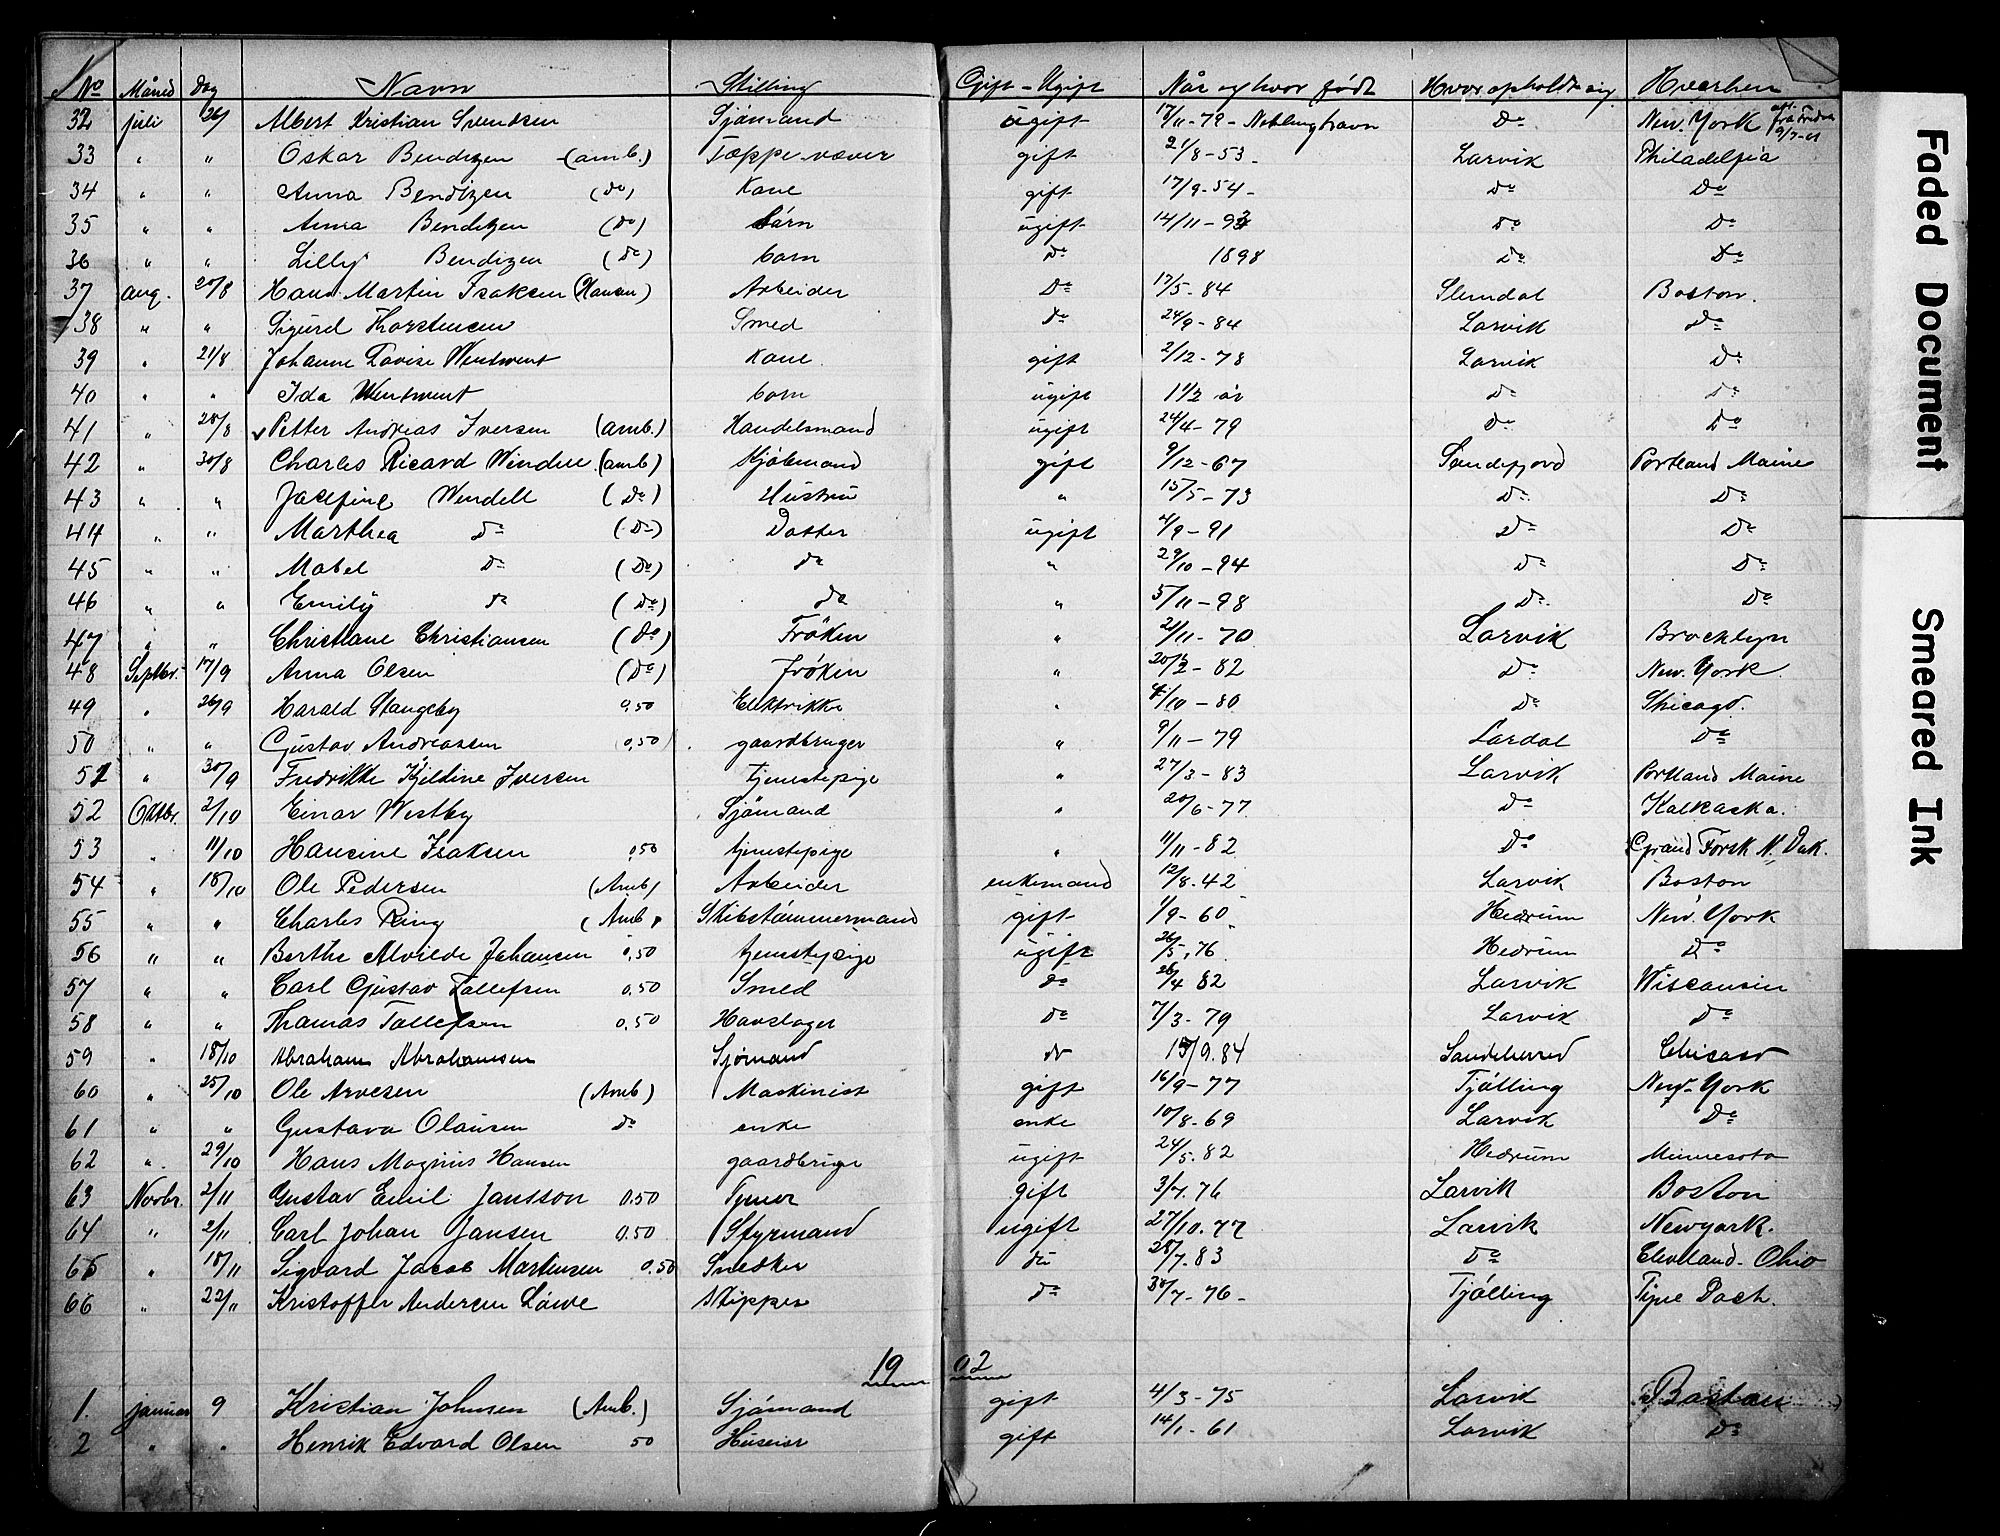 No Måned Dag Navn Stilling Gift - Ugift Når og hvor født Hvor opholdt sig Hvorhen
32 juli 26/ Albert Kristian Svendsen Sjömand ugift 17/11-79 - Nevlunghavn Do New. York
33 " " Oskar Bendixen (amb.) Tæppe væver gift 21/8-53 - Larvik Philadelfia
34 " " Anna Bendixen (do) Kone gift 17/9-54 - Do Do
35 " " Anna Bendixen (do) börn ugift 14/11-93 Do Do
36 " " Lilly Bendixen (do) barn Do 1898 Do Do
37 aug. 20/8 Hans Martin Isaksen (Hansen) Arbeider Do 17/5-84 Slemdal Boston.
38 " " Sigurd Thorstensen Smed Do 24/9-84 Larvik Do
39 " 21/8 Johanne Lovise Wentwent Kone gift 2/12-78 Larvik Do
40 " " Ida Wentwent barn ugift 1 1/2 år Do Do
41 " 28/8 Petter Andreas Iversen (amb.) Handelsmand ugift 24/4-79 Do Do
42 " 30/8 Charles Ricard Wendell (amb) Kjöbmand gift 9/12-67 Sandefjord Portland Maine
43 " " Josefine Wendell (Do) Hustru " 15/5-73 Do Do
44 " " Marthea Do (Do) Datter ugift 4/9-91 Do Do
45 " " Mabel Do (Do) do " 29/10-94 Do Do
46 " " Emily do (Do) do " 5/11-98 Do. Do
47 " " Christiane Christiansen (Do) Fröken " 21/11-70 Larvik Brocklyn
48 Septbr. 17/9 Anna Olsen (Do) fröken " 20/2-82 Do New. York.
49 " 26/9 Harald Stangeby 0,50 Elektrikke " 4/10-80 Do Shicago.
50 " " Gustav Andreassen (0,50) gaardbruger " 9/11-79 Lardal Do
51 " 30/9 Fredrikke Kjeldine Iversen tjenestepige " 27/3-83 Larvik Portland Maine
52 Oktbr. 2/10 Einar Westby Sjömand " 20/6-77 Do Kalkaska.
53 " 11/10 Hansine Isaksen 0,50 tjenestepige " 11/11-82 Do Grand Forsk N. Dak.
54 " 18/10 Ole Pedersen (Amb) Arbeider enkemand 12/8.42 Larvik Boston
55 " " Charles Ring (Amb Skibstömmermand gift 1/9-60 Hedrum New. York
56 " " Berthe Alvilde Johansen 0,50 tjenestepige ugift 26/5,76 Hedrum Do
57 " " Carl Gustav Tollefsen 0,50 Smed do 26/4 82 Larvik Wiscansin
58 " " Thomas Tollefsen 0,50 Hovslager do 7/3-79 Larvik Do
59 " 18/10 Abraham Abrahamsen Sjømand do 15/9.84 Sandeherred Chicago
60 " 25/10 Ole Arvesen (Amb) Maskinist gift 16/9-77 Tjölling New-York
61 " " Gustava Olausen do enke enke 10/8-69 Larvik Do
62 " 29/10 Hans Magnus Hansen gaardbruge ugift 24/5.82 Hedrum Minnesota
63 Novbr. 2/11 Gustav Emil Jansson 0.50 gift 3/7.76 Larvik Boston
64 " 2/11 Carl Johan Jansen 0.50 Styrmand ugift 27/10.77 Larvik Newyork.
65 " 18/11 Sigvard Jacob Martensen 0.50 Snedker do 28/7.83 Do Clevland-Ohio
66 " 22/11 Kristoffer Andersen Löwe Skipper do 30/7-76 - Tjölling
1902
1. januar 9 Kristian Johnsen (Amb.) Sjömand gift 4/3-75 Larvik Bostan
2 " " Henrik Edvard Olsen 50 Huseier gift 14/1-61 Larvik Do
Faded Document
Smeared Ink